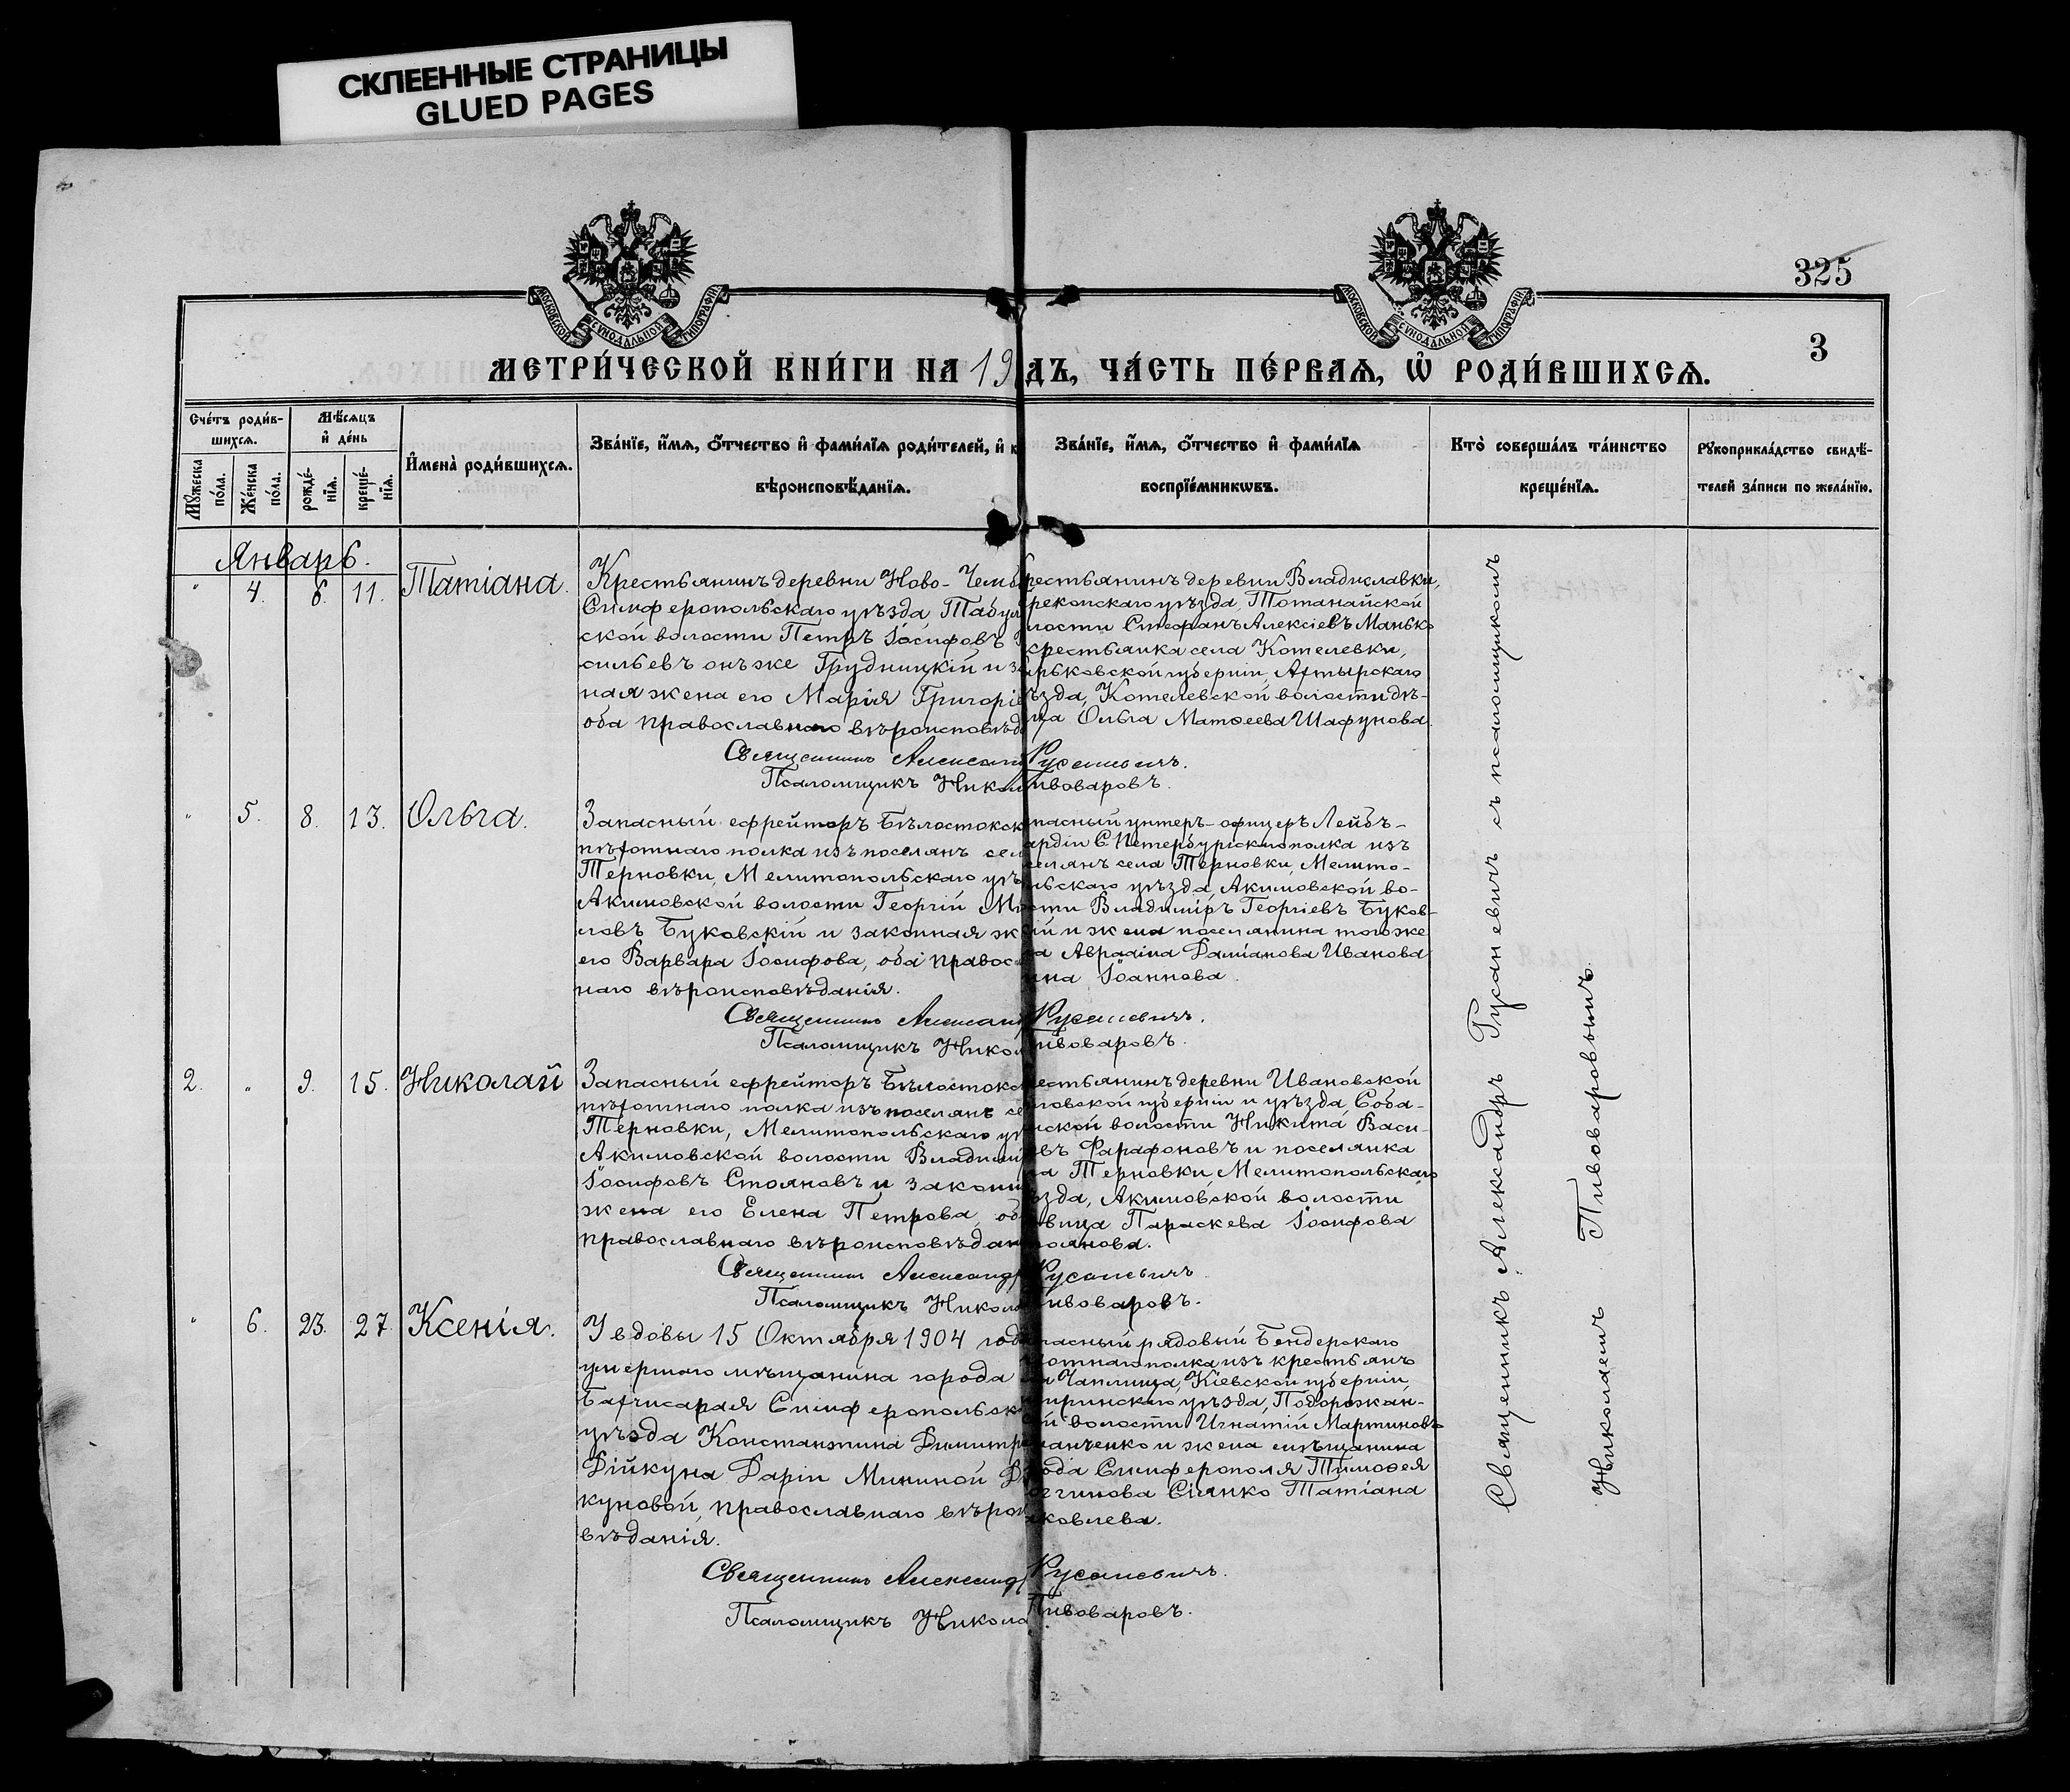 СКЛЕЕННЫЕ СТРАНИЦЫ
GLUED PAGES
325
3
МОСКОВСКОЙ СѴНОДАЛЬНОЙ ТИПОГРАФІИ
МОСКОВСКОЙ СѴНОДАЛЬНОЙ ТИПОГРАФІИ
МЕТРИ́ЧЕСКОЙ КНИ́ГИ НА 19
ДЪ, ЧА́СТЬ ПЕ́РВАѦ, Ѡ҆ РОДИ́ВШИХСѦ.
Сче́тъ роди́в-
шихсѧ.
Мꙋ́жеска по́ла.
Же́нска по́ла.
Мѣ́сѧцъ
и҆ де́нь
рожде́-нїѧ.
креще́-нїѧ.
И҆мена̀ роди́вшихсѧ.
Зва́нїе, и҆́мѧ, ѻ҆́тчество и҆ фами́лїѧ роди́телей, и҆ к
вѣроисповѣ́данїѧ.
Зва́нїе, и҆́мѧ, ѻ҆́тчество и҆ фами́лїѧ
воспрїе́мникѡвъ.
Кто̀ соверша́лъ та́инство
креще́нїѧ.
Рꙋкоприкла́дство свидѣ́-
телей за́писи по жела́нїю.
Январь.
" 4. 8. 11. Татіана.
Крестьянинъ деревни Ново-Чемб
Симферопольскаго уѣзда, Табул
ской волости Петръ Іосифовъ
сильевъ онъ же Грудницкій и за
ная жена его Марія Григоріе
оба православнаго вѣроисповѣд
Священникъ Александ
Псаломщикъ Никол
рестьянинъ деревни Владиславки,
рекопскаго уѣзда, Тотанайской
лости Стефанъ Алексіевъ Манько
крестьянка села Котелевки,
арьковской губерніи, Ахтырскаго
ѣзда, Котелевской волости дѣ-
ица Ольга Матѳеева Шафунова.
Русаневичъ.
Пивоваровъ.
" 5. 8. 13. Ольга.
Запасный ефрейторъ Бѣлостокск
пѣхотнаго полка изъ поселянъ сел
Терновки, Мелитопольскаго уѣ
Акимовской волости Георгій М
ловъ Буковскій и законная ж
его Варвара Іосифова, оба правос
наго вѣроисповѣданія.
Священникъ Александ
Псаломщикъ Никол
пасный унтеръ-офицеръ Лейбъ-
ардіи С Петербургскаго полка изъ
селянъ села Терновки, Мелито-
льскаго уѣзда, Акимовской во-
сти Владиміръ Георгіевъ Буков-
ій и жена поселянина того же
ла Авраама Даміанова Иванова
нна Іоаннова.
Русаневичъ.
Пивоваровъ.
2. " 9. 15. Николай
Запасный ефрейторъ Бѣлостокс
пѣхотнаго полка изъ поселянъ се
Терновки, Мелитопольскаго уѣ
Акимовской волости Владимі
Іосифовъ Стояновъ и законн
жена его Елена Петрова, об
православнаго вѣроисповѣдан
Священникъ Александр
Псаломщикъ Никола
естьянинъ деревни Ивановской
ловской губерніи и уѣзда, Соба-
нской волости Никита Васи-
евъ Фарафоновъ и поселянка
ла Терновки, Мелитопольскаго
ѣзда, Акимовской волости
вица Параскева Іосифова
тоянова.
Русаневичъ.
Пивоваровъ.
" 6. 23. 27. Ксенія.
У вдовы 15 Октября 1904 года
умершаго мѣщанина города
Бахчисарая Симферопольск
уѣзда Константина Димитрі
Дійкуна Даріи Мининой Д
куновой, православнаго вѣрои
вѣданія.
Священникъ Александр
Псаломщикъ Никола
пасный рядовый Бендерскаго
хотнаго полка изъ крестьянъ
ла Чаплища, Кіевской губерніи,
гиринскаго уѣзда, Подорожан-
ой волости Игнатій Мартиновъ
манченко и жена мѣщанина
рода Симферополя Тимоѳея
Сіянко Татіана
яковлева.
Русаневичъ.
Пивоваровъ.
Священникъ Александръ Русаневичъ съ псаломщикомъ
Николаемъ Пивоваровымъ.